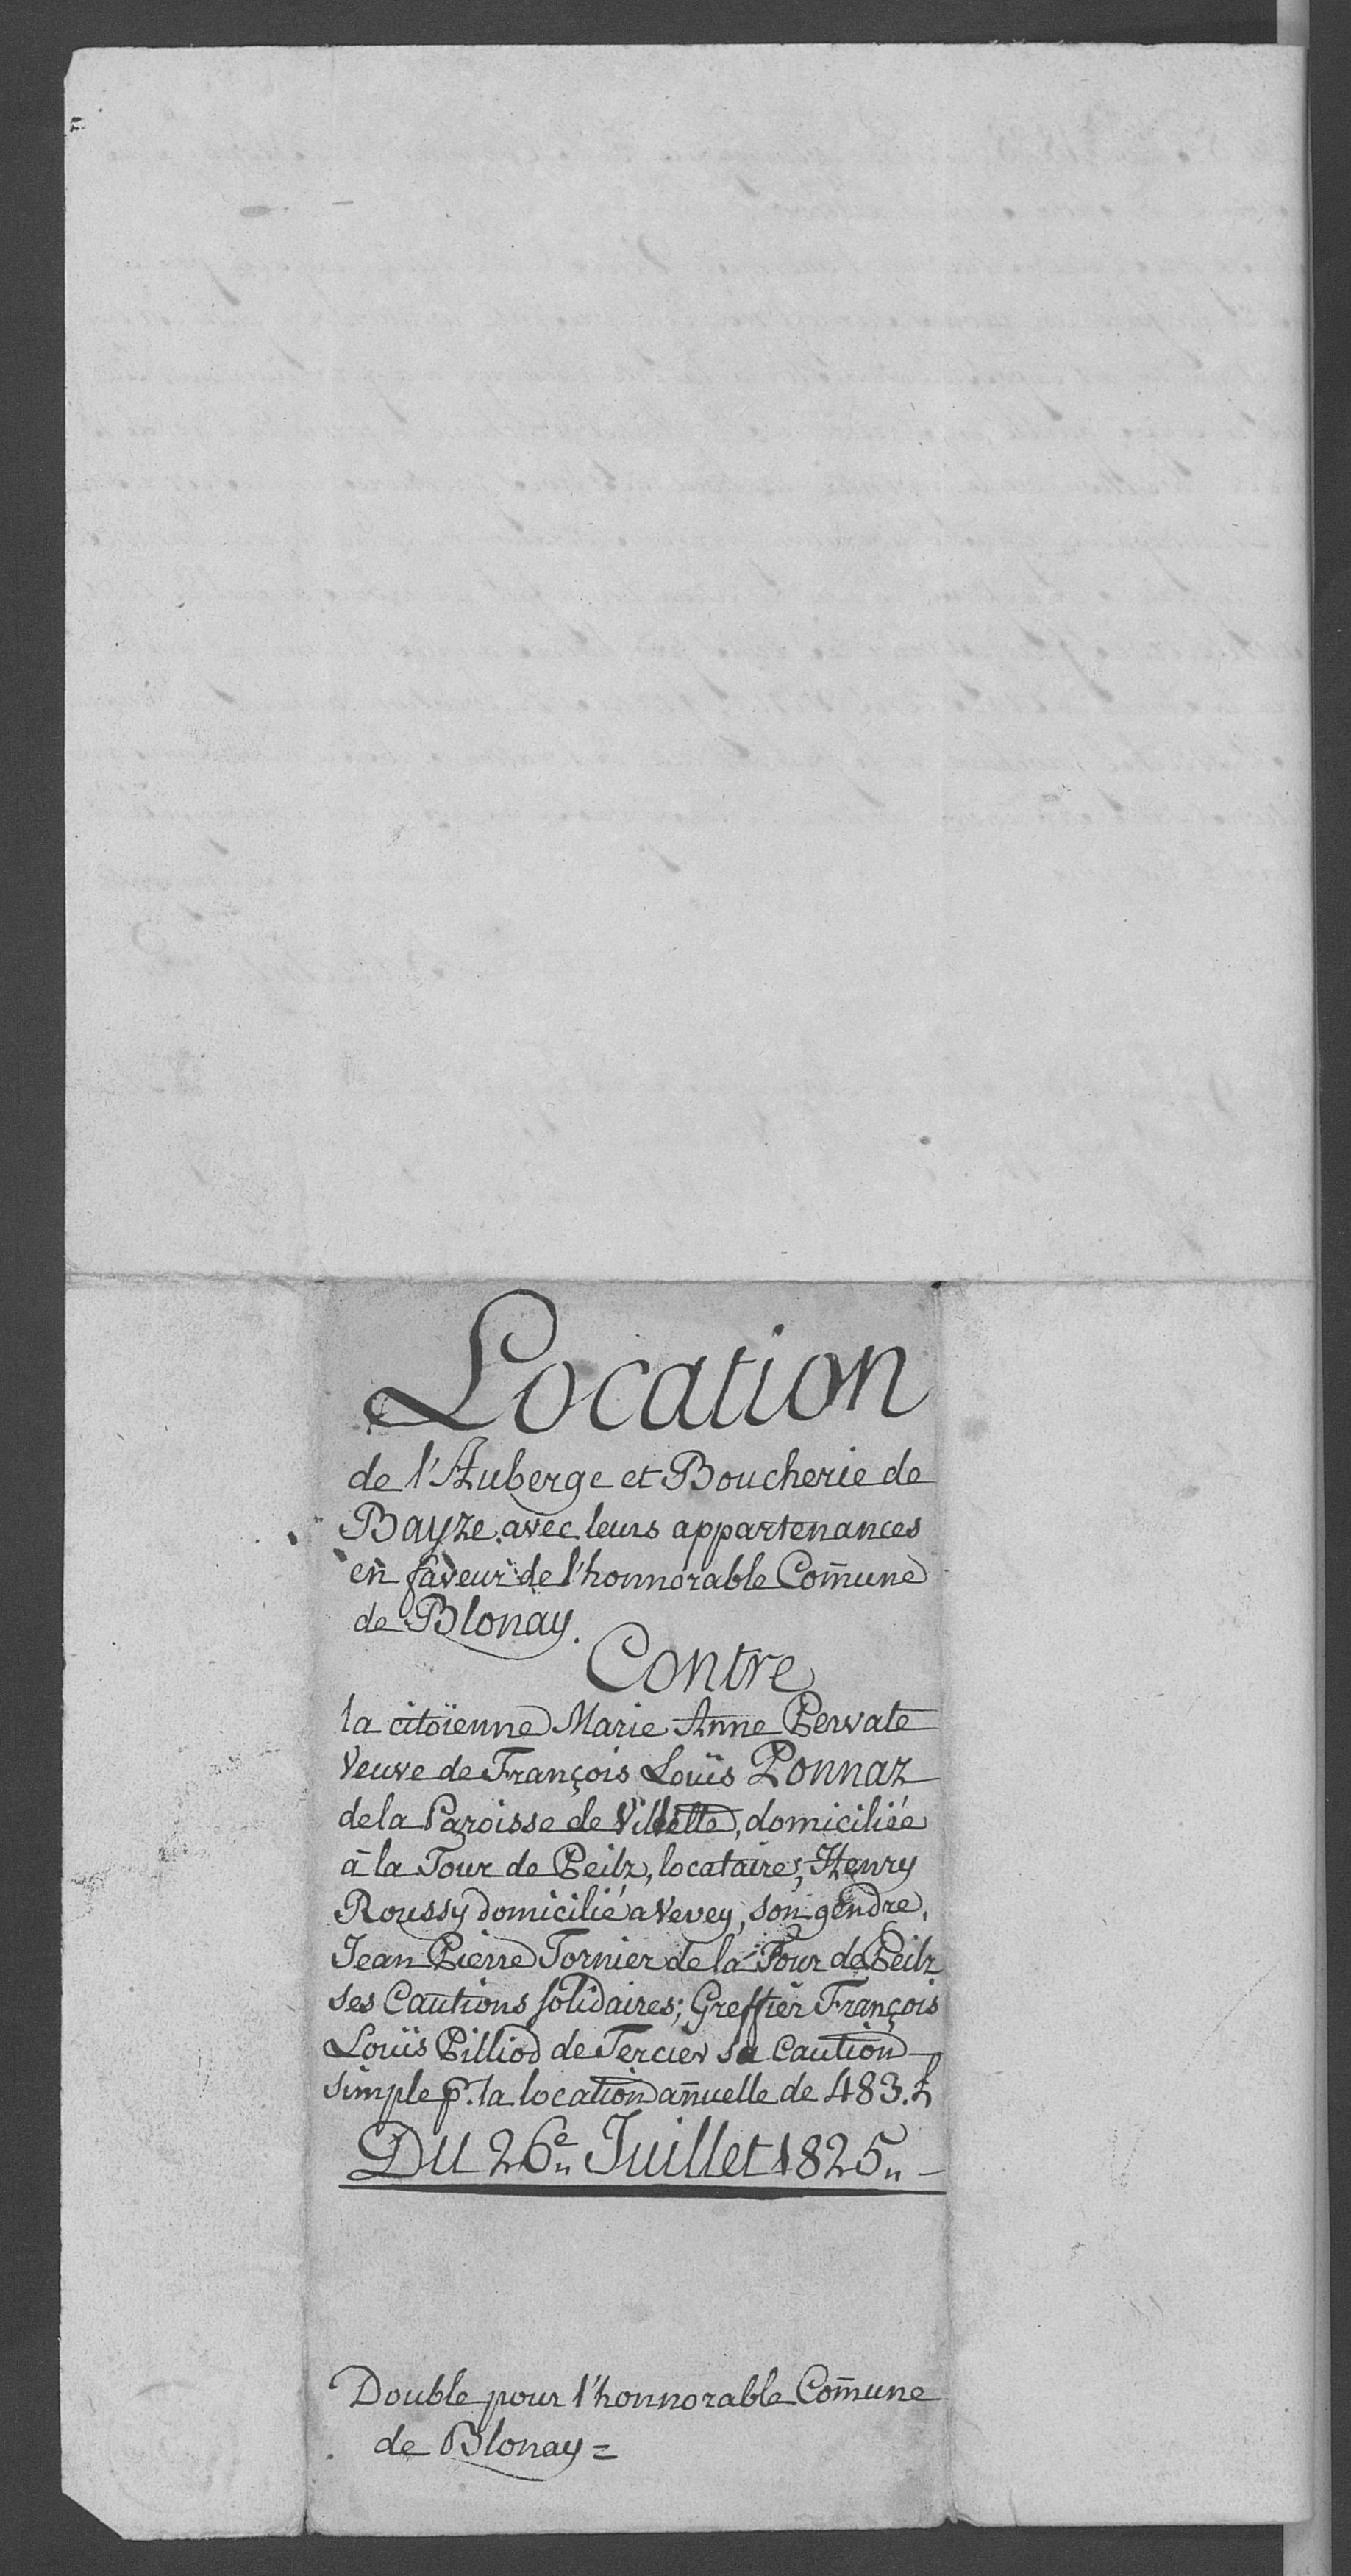 Location
de l'Auberge et Boucherie de
Bayze, avec leurs appartenances
en faveur de l'honnorable Com̄une
de Blonay.
Contre
la citoïenne Marie Anne Pervate
Veuve de François Louïs Ponnaz
de la Paroisse de Villette, domiciliée
à la Tour de Peilz, locataire; Henry
Roussy domicilié a Vevey, son gendre,
Jean Pierre Tornier de la Tour de Peilz
ses Cautions solidaires; Greffier François
Louïs Pilliod de Tercier sa Caution
simple p. la location an̄uelle de 483.
Du 26e Juillet 1825.
Double pour l'honnorable Com̄une
de Blonay =